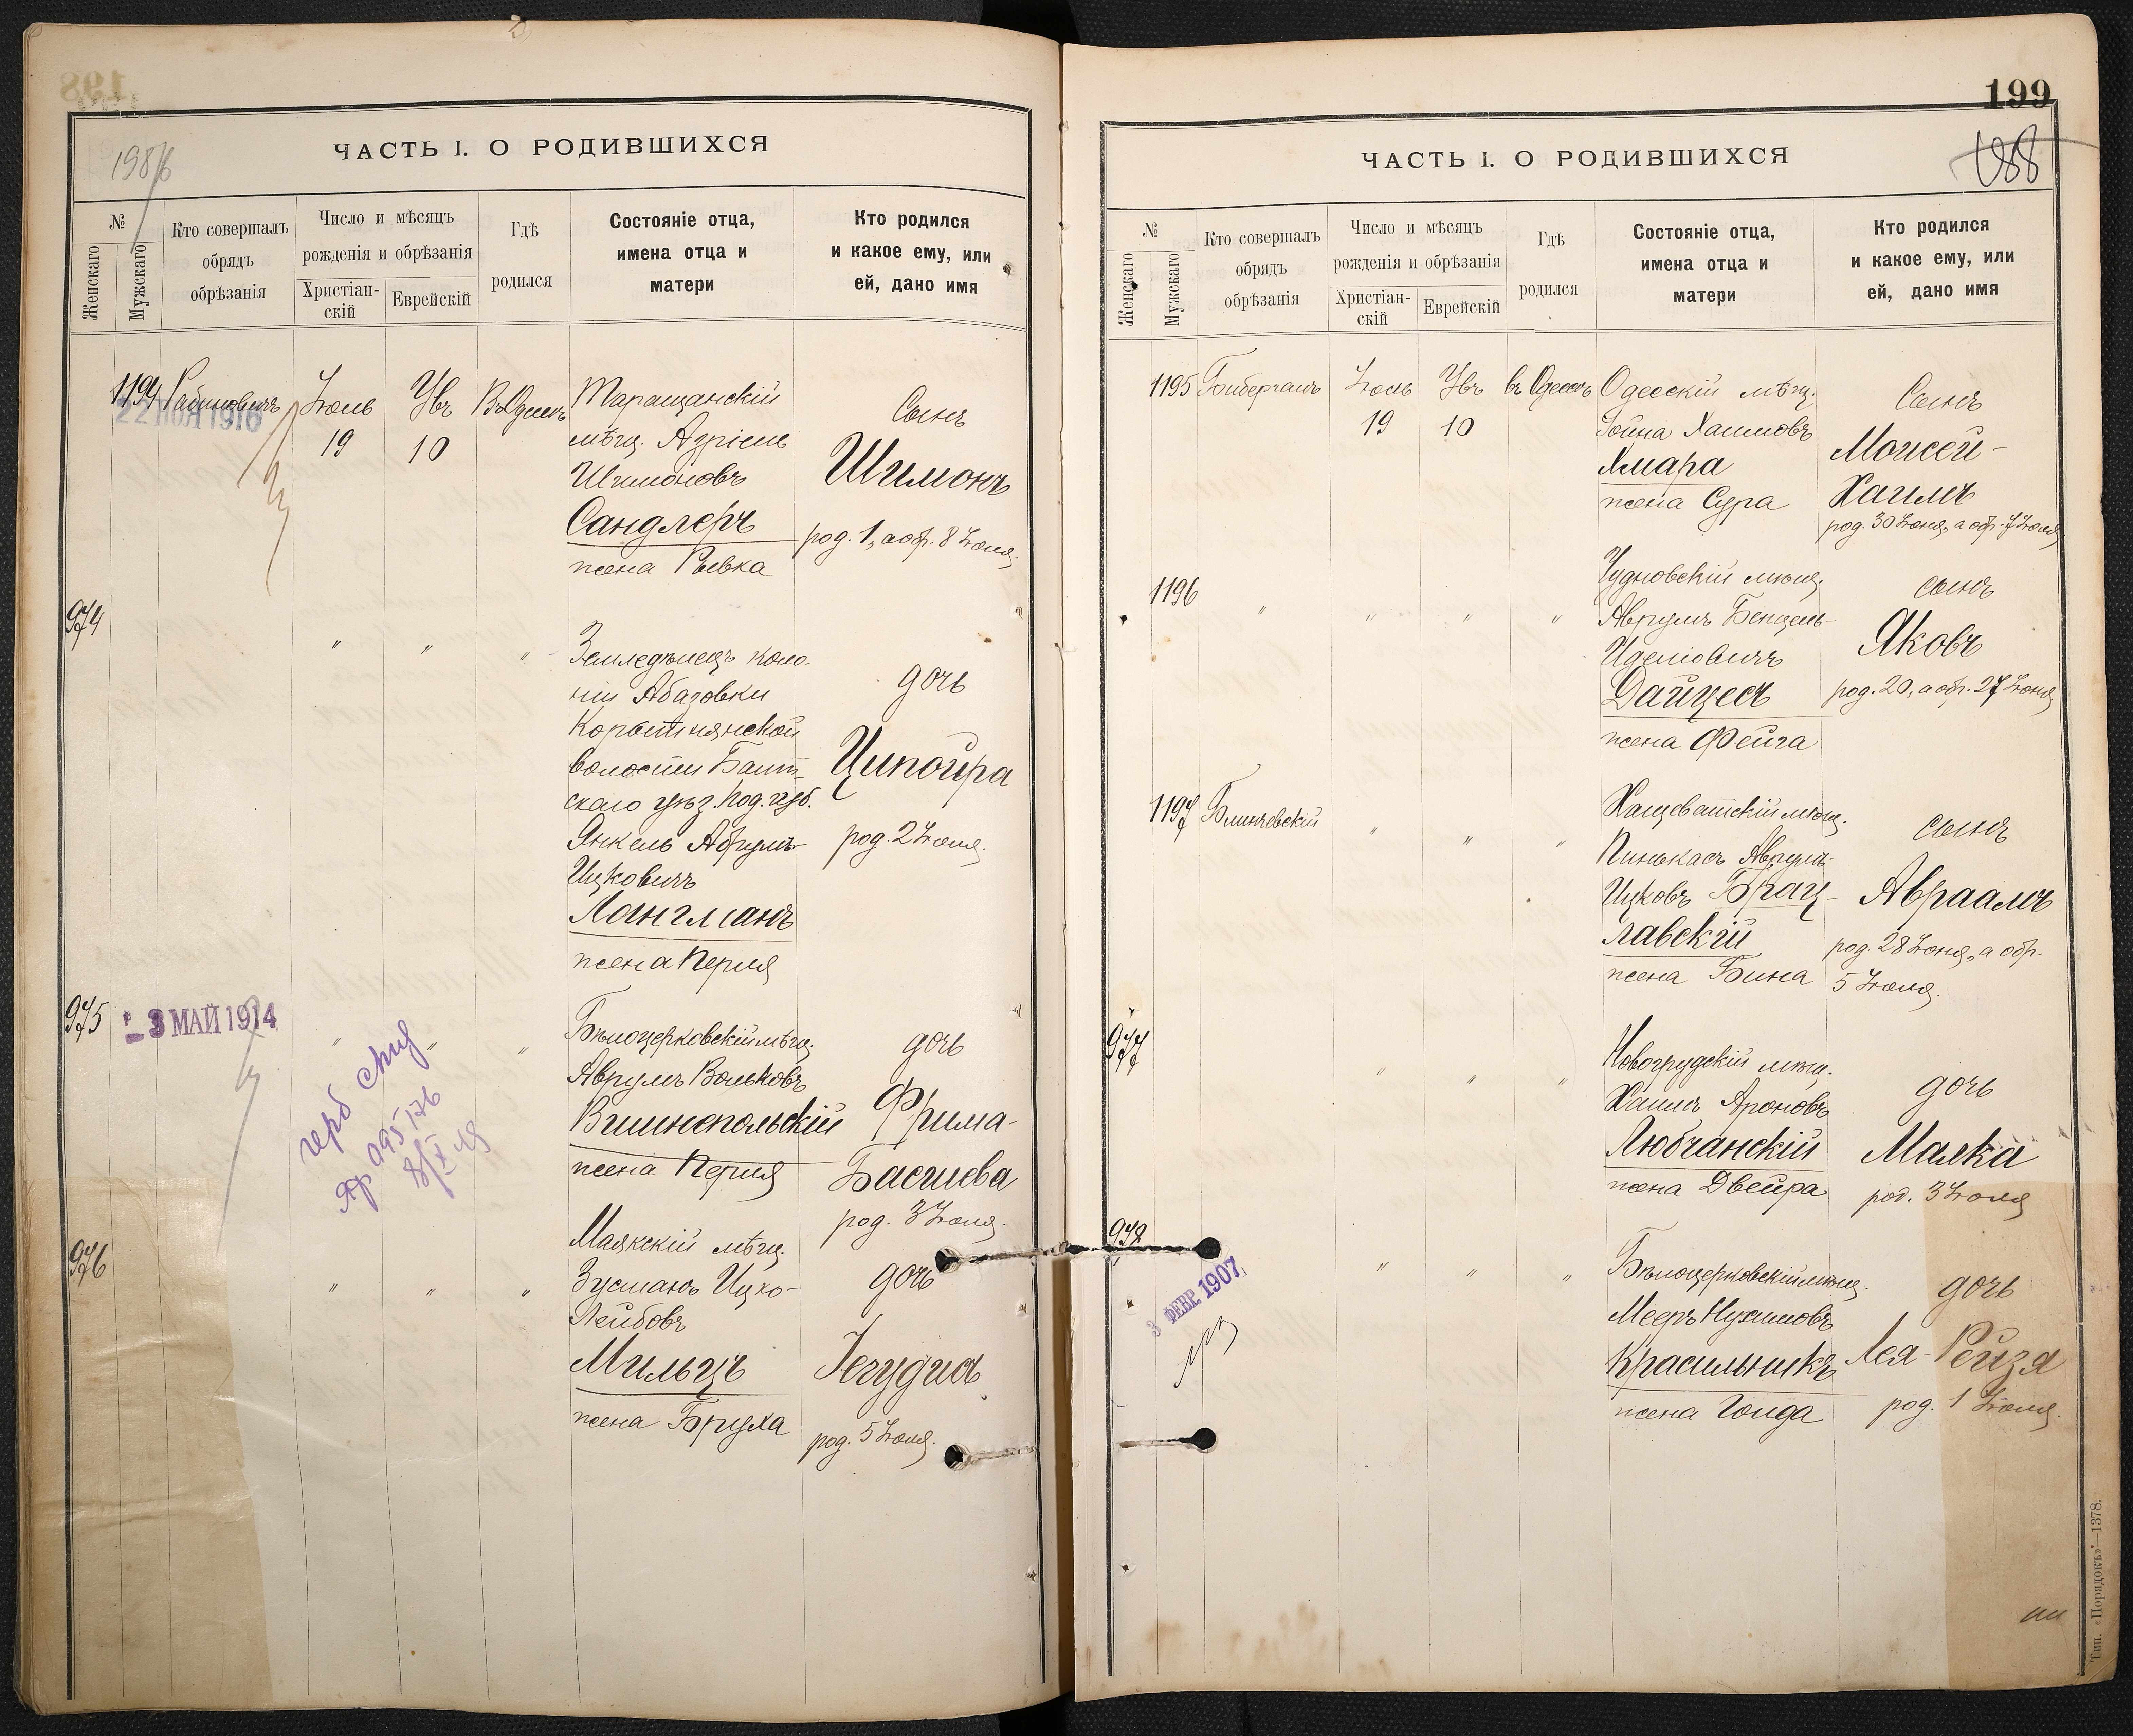 198
ЧАСТЬ I. О РОДИВШИХСЯ
№
Женскаго
Мужскаго
Кто совершалъ
обрядъ
обрѣзанія
Число и мѣсяцъ
рожденія и обрѣзанія
Христіан-
скій
Еврейскій
Гдѣ
родился
Состояніе отца,
имена отца и
матери
Кто родился
и какое ему, или
ей, дано имя
1194 Рабиновичъ Іюль 19 Ув 10 Въ Одессѣ
22 НОЯ 1916
Таращанскій
мѣщ. Азріель
Шимоновъ
Сандлеръ
жена Рывка
Сынъ
Шимонъ
род. 1, а обр. 8 Іюля.
974 " " "
Земледѣлецъ коло-
ніи Абазовки
Корытнянской
волости Балт-
скаго уѣз. Под. губ.
Янкель Абрумъ-
Ицковичъ
Лангманъ
жена Перля
дочь
Ципойра
род. 2 Іюля.
975 " " "
- 3 МАЙ 1914
Бѣлоцерковскій мѣщ.
Аврумъ Вольковъ
Вишнепольскій
жена Перля
дочь
Фрима-
Басшева
род. 3 Іюля.
976 " " "
Маякскій мѣщ.
Зусманъ Ицко-
Лейбовъ
Мильцъ
жена Бруха
дочь
Іегудис
род. 5 Іюля.
199
188
ЧАСТЬ I. О РОДИВШИХСЯ
№
Женскаго
Мужскаго
Кто совершалъ
обрядъ
обрѣзанія
Число и мѣсяцъ
рожденія и обрѣзанія
Христіан-
скій
Еврейскій
Гдѣ
родился
Состояніе отца,
имена отца и
матери
Кто родился
и какое ему, или
ей, дано имя
1195 Іюль 19 Ув 10 въ Одессѣ
Одесскій мѣщ.
Іойна Хаимовъ
Хмара
жена Сура
Сынъ
Моисей-
Хаимъ
род. 30 Іюня, а обр. 7 Іюля
1196 " " " "
Чудновскій мѣщ.
Аврумъ Бенцель-
Иделіовичъ
Дайцесъ
жена Фейга
сынъ
Яковъ
род. 20, а обр. 27 Іюня
1197 " " "
Хащеватскій мѣщ.
Пинькасъ Аврумъ-
Ицковъ Брац-
лавскій
жена Бина
сынъ
Авраамъ
род. 28 Іюня, а обр.
5 Іюля.
977 " " "
Новогрудскій мѣщ.
Хаимъ Ароновъ
Любчанскій
жена Двейра
дочь
Малка
род. 3 Іюля
978 " " "
3 ФЕВР. 1907
Бѣлоцерковскій мѣщ.
Мееръ Нухимовъ
Красильникъ
жена Гольда
дочь
Лея-Рейзя
род. 1 Іюля.
Тип. «Порядокъ»—1378.